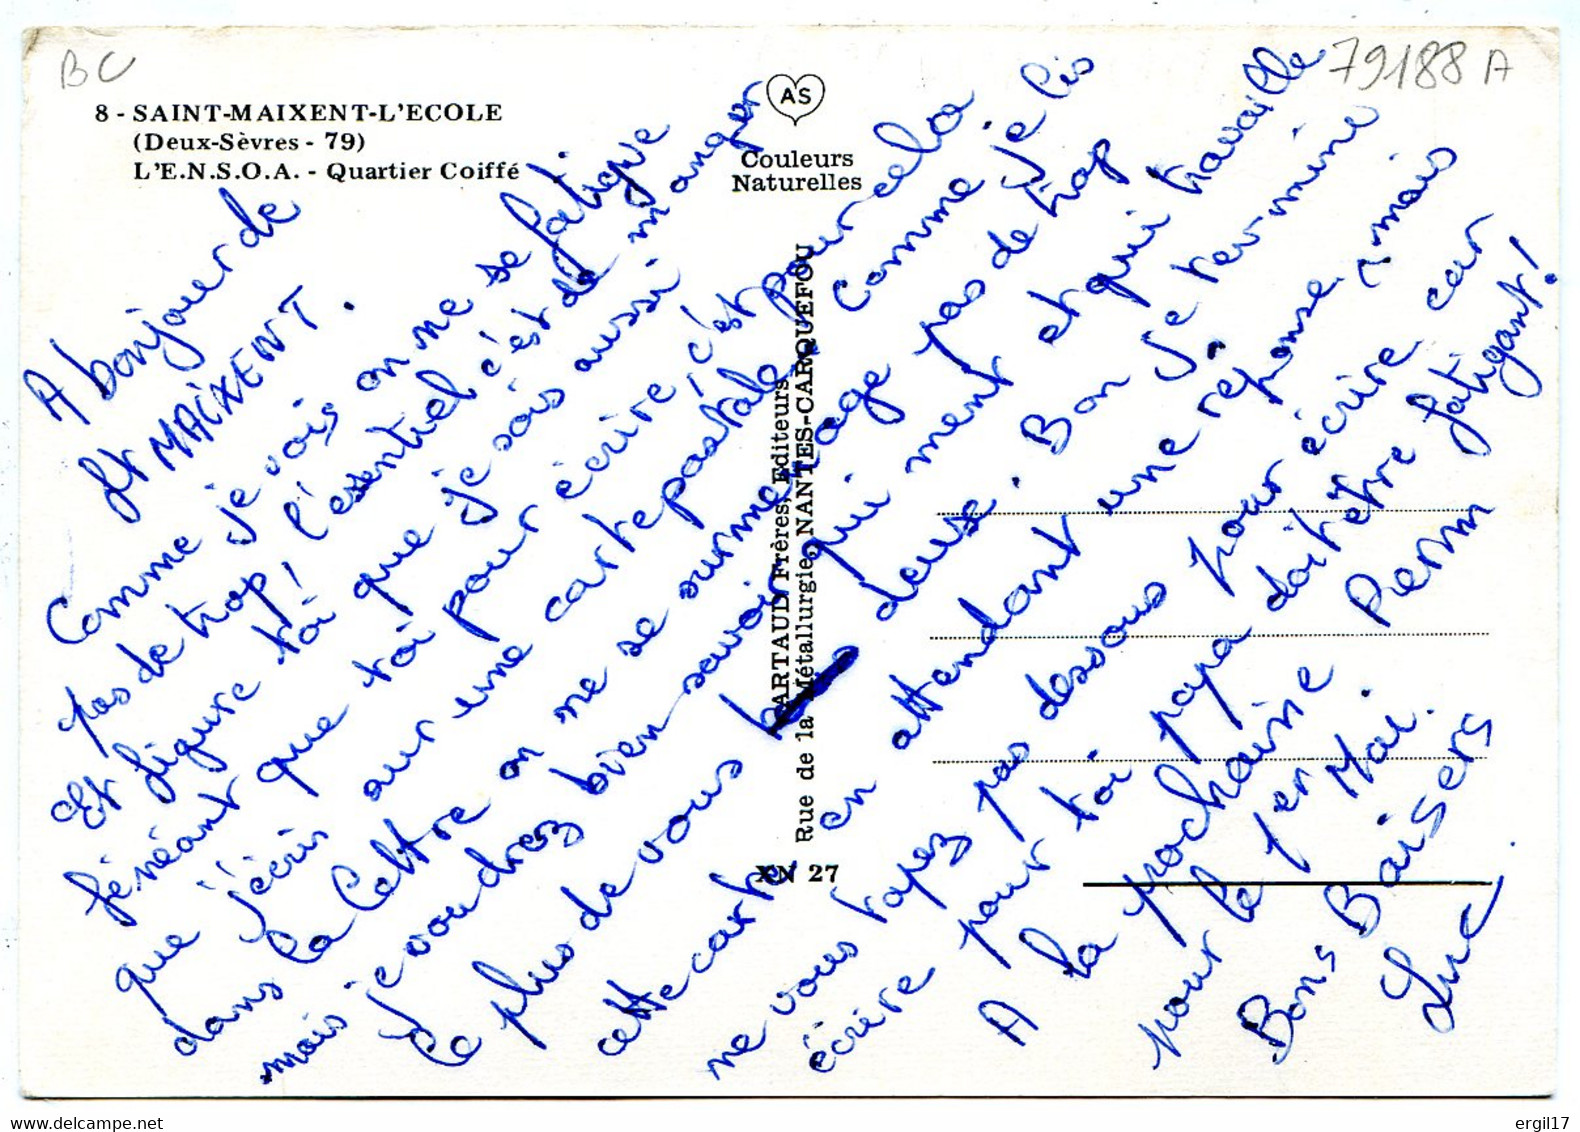 BC
79188 A
8 - SAINT-MAIXENT-L'ECOLE
(Deux-Sèvres - 79)
L'E.N.S.O.A. - Quartier Coiffé
AS
Couleurs
Naturelles
ARTAUD Frères, Editeurs
Rue de la Métallurgie, NANTES-CARQUEFOU
XN 27
A bonjour de
St MAIXENT.
Comme je vois on ne se fatigue
pas de trop, l'éssentiel c'est de manger
Et figure toi que je sois aussi
fénéant que toi pour écrire, c'est pour cela
que j'écris sur une carte postale, comme je lis
dans la lettre on ne se surmene pas de trop
mais je voudrez bien savoir qui ment et qui travaille
le plus de vous deux. Bon Je termine
cette carte en attendant une reponse, mais
ne vous tapez pas dessous pour écrire car
écrire pour toi papa doit être fatigant!
A la prochaine Perm
pour le 1er Mai.
Bons Baisers
Luc
delcampe.net
ergil17